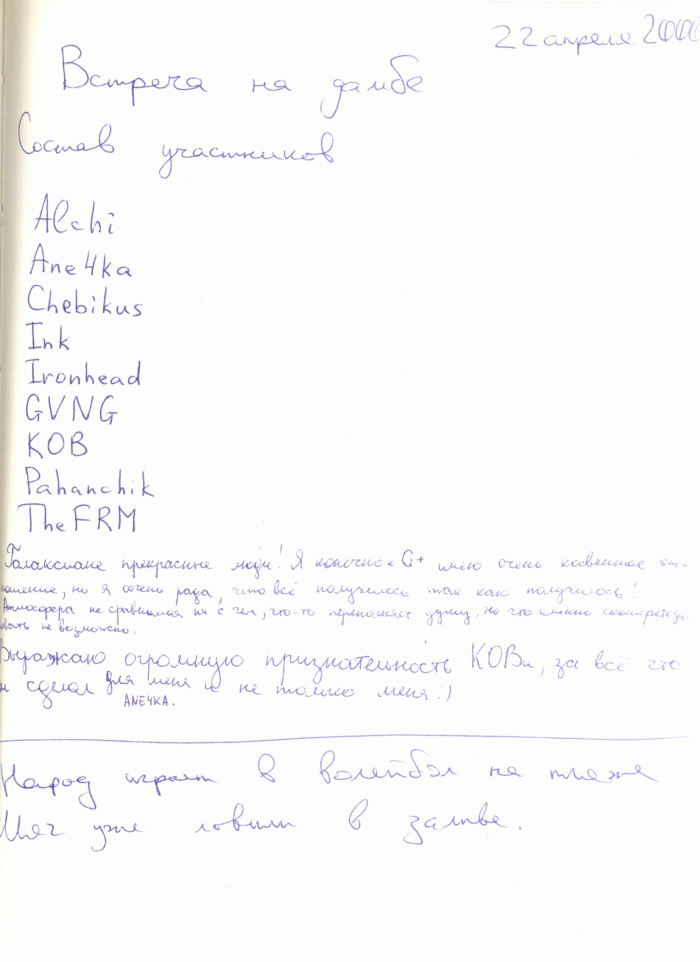 22 апреля 2000
Встреча на дамбе
Состав участников
Alchi
Ane4ka
Chebikus
Ink
Ironhead
GVNG
KOB
Pahanchik
The FRM
Галаксиане прекрасные люди! Я конечно к G+ имею очень косвенное от-
ношение, но я очень рада, что всё получилось так как получилось!
Атмосфера не сравнимая ни с чем, что-то переполняет душу, но что именно сконкретезир-
вать не возможно.
Выражаю огромную признательность КОВу, за всё что
н сделал для меня и не только меня :)
ANE4KA.
Народ играет в волейбол на пляже
Мяч уже ловили в заливе.